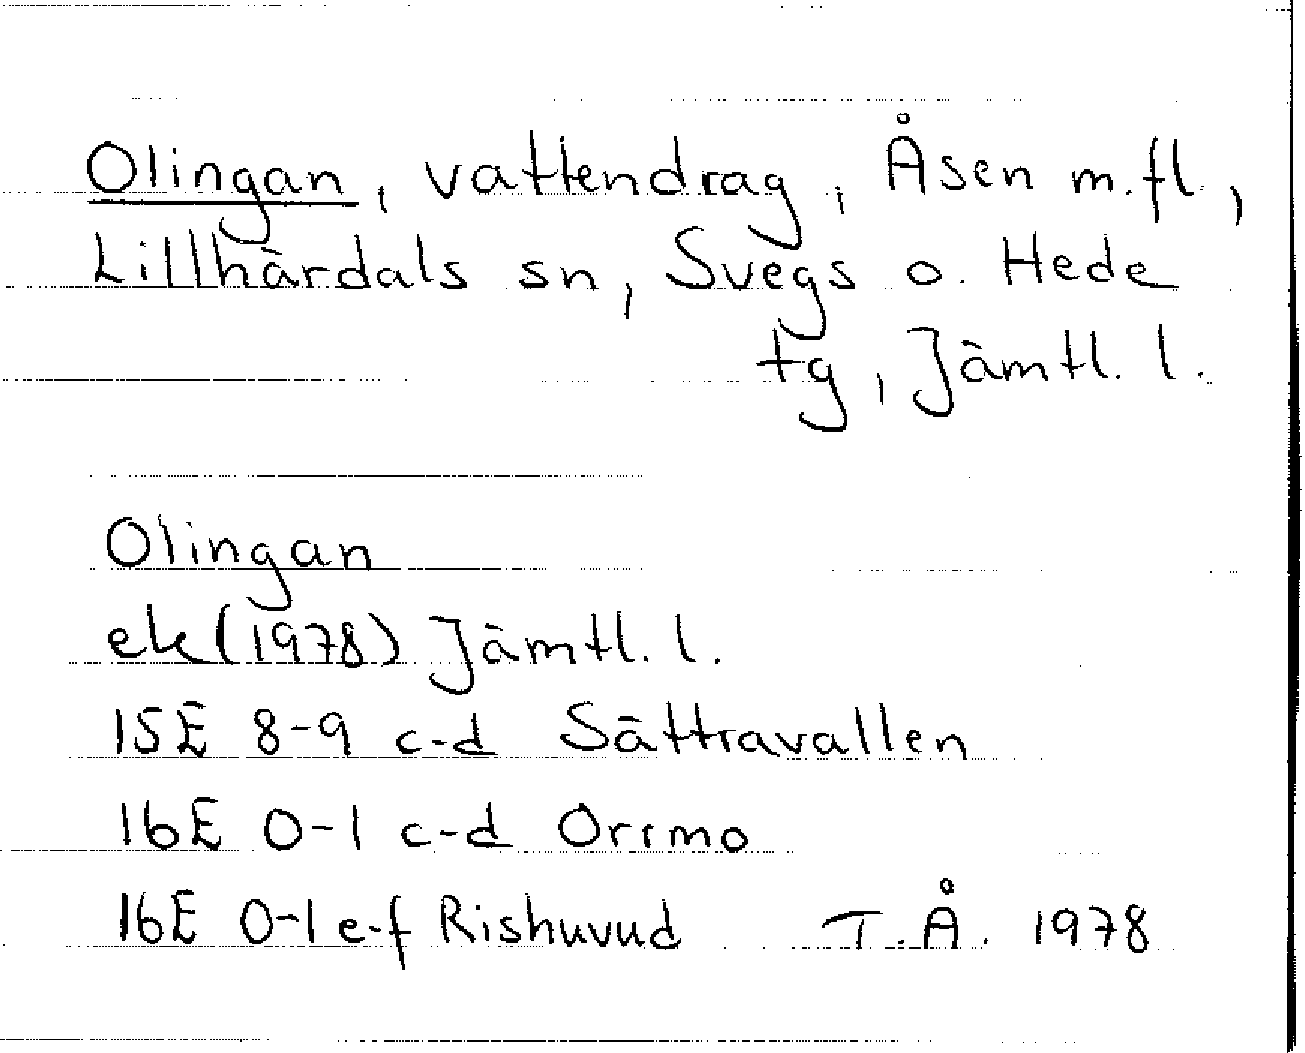 Olingan, vattendrag, Åsen m.fl.,
Lillhärdals sn, Svegs o. Hede
tg, Jämtl. l.
Olingan
ek (1978) Jämtl. l.
15E 8-9 c-d Sättravallen
16E 0-1 c-d Orrmo
16E 0-1 e-f Rishuvud T.Å. 1978